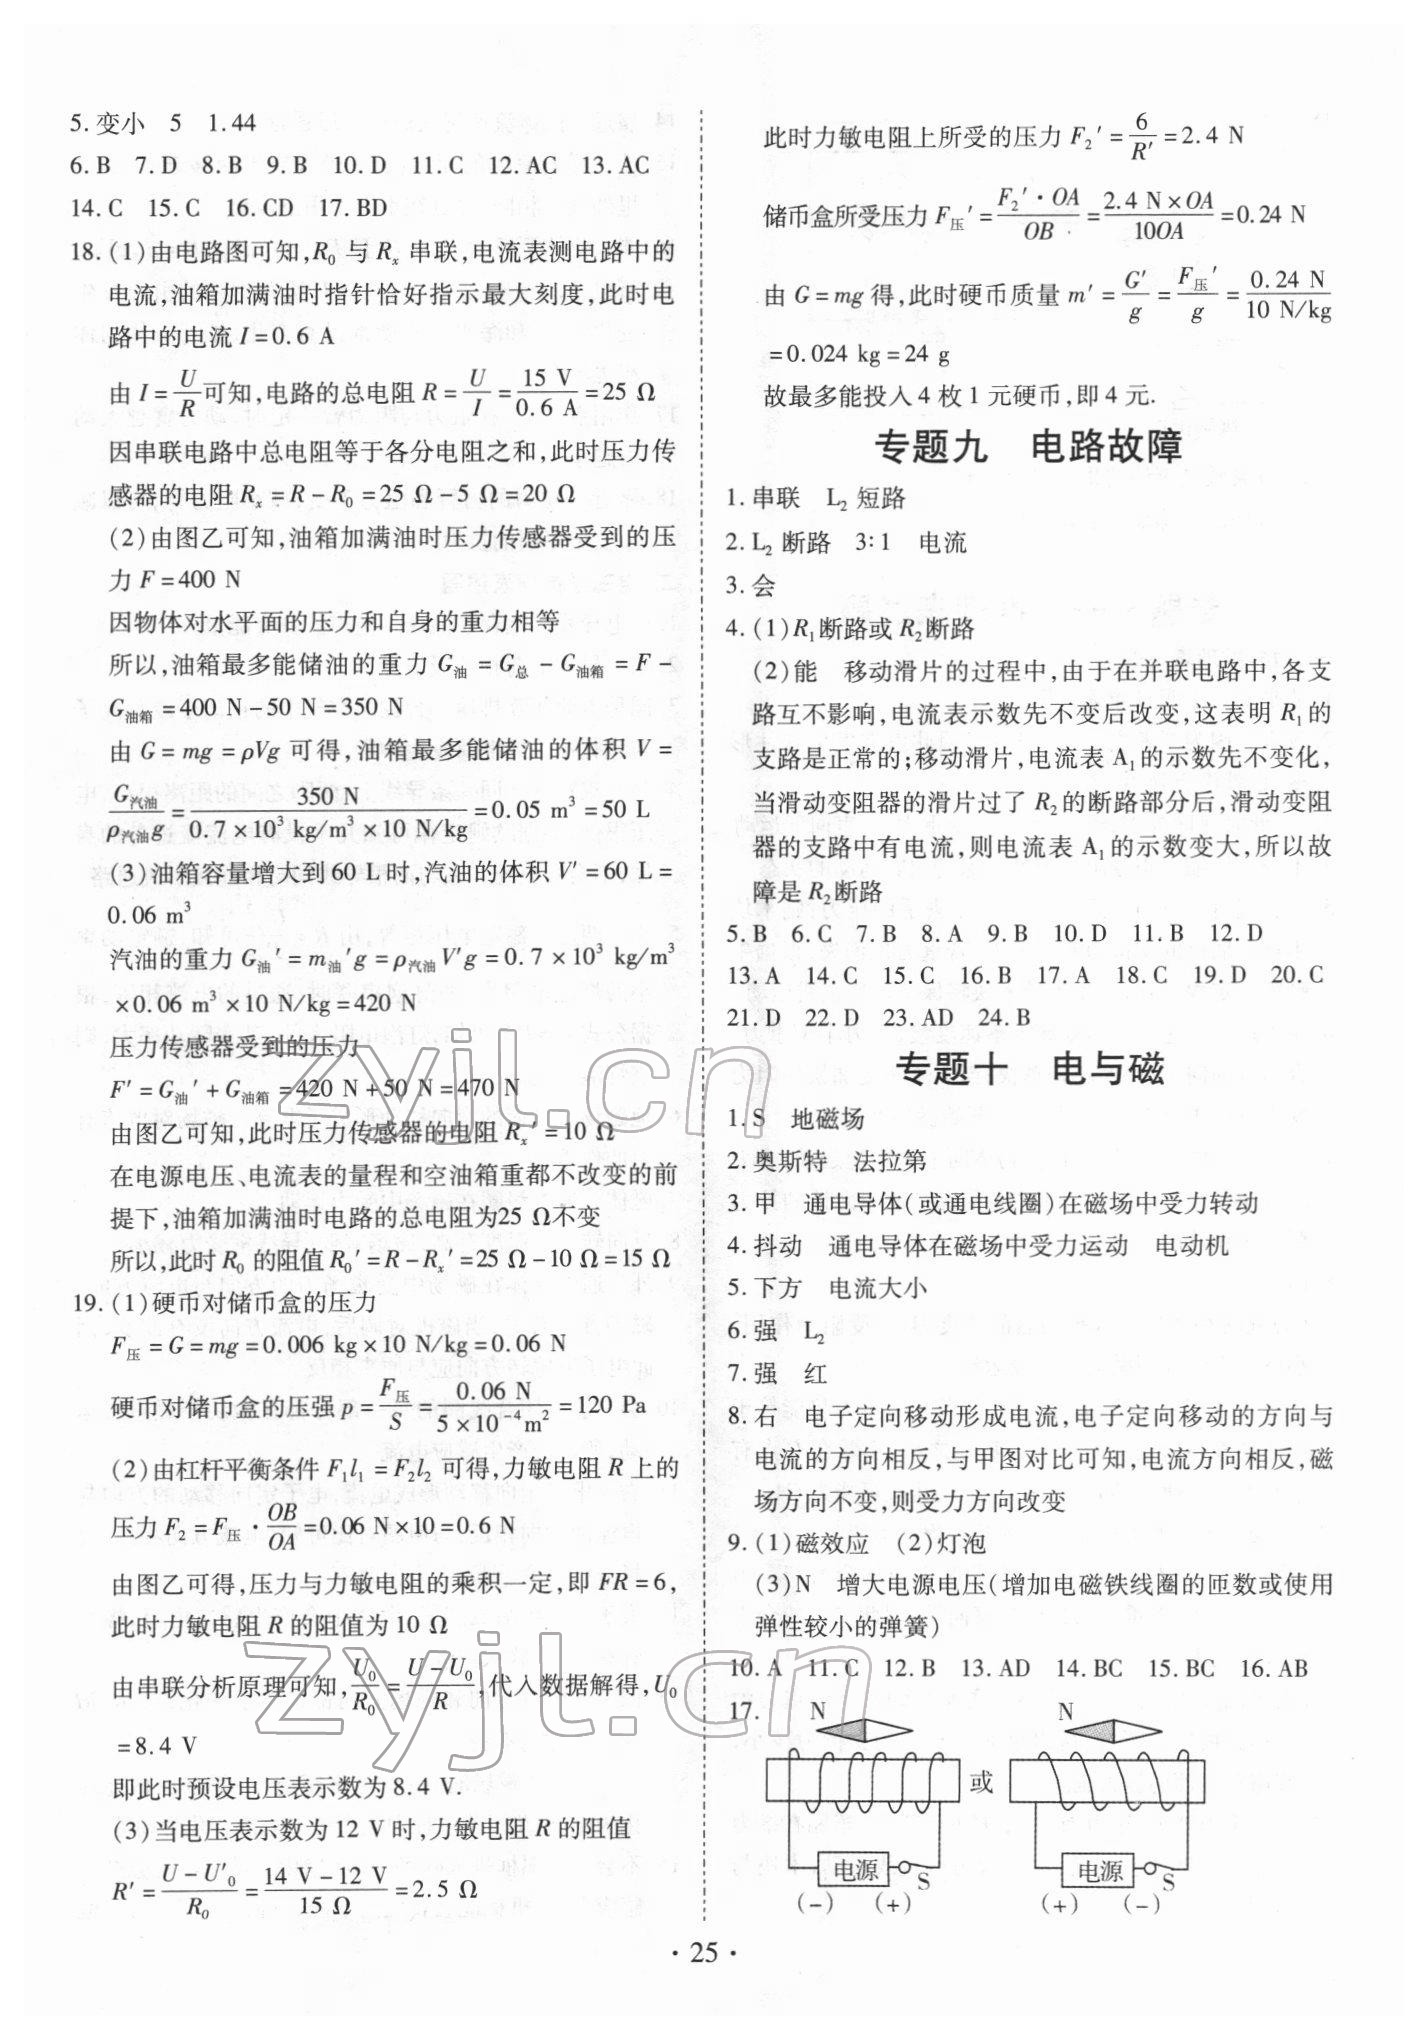 5. 变小 5 1.44
6. B 7. D 8. B 9. B 10. D 11. C 12. AC 13. AC
14. C 15. C 16. CD 17. BD
18. (1)由电路图可知,R₀ 与 Rₓ 串联,电流表测电路中的
电流,油箱加满油时指针恰好指示最大刻度,此时电
路中的电流 I=0.6 A
由 I=U/R可知,电路的总电阻 R=U/I=15 V/0.6 A=25 Ω
因串联电路中总电阻等于各分电阻之和,此时压力传
感器的电阻 Rₓ=R-R₀=25 Ω-5 Ω=20 Ω
(2)由图乙可知,油箱加满油时压力传感器受到的压
力 F=400 N
因物体对水平面的压力和自身的重力相等
所以,油箱最多能储油的重力 G油=G总-G油箱=F-
G油箱=400 N-50 N=350 N
由 G=mg=ρVg 可得,油箱最多能储油的体积 V=
G汽油/ρ汽油g=350 N/0.7×10³ kg/m³×10 N/kg=0.05 m³=50 L
(3)油箱容量增大到 60 L 时,汽油的体积 V′=60 L=
0.06 m³
汽油的重力 G油′=m油′g=ρ汽油V′g=0.7×10³ kg/m³
×0.06 m³×10 N/kg=420 N
压力传感器受到的压力
F′=G油′+G油箱=420 N+50 N=470 N
由图乙可知,此时压力传感器的电阻 Rₓ′=10 Ω
在电源电压、电流表的量程和空油箱重都不改变的前
提下,油箱加满油时电路的总电阻为25 Ω不变
所以,此时 R₀ 的阻值 R₀′=R-Rₓ′=25 Ω-10 Ω=15 Ω
19. (1)硬币对储币盒的压力
F压=G=mg=0.006 kg×10 N/kg=0.06 N
硬币对储币盒的压强 p=F压/S=0.06 N/5×10⁻⁴m²=120 Pa
(2)由杠杆平衡条件 F₁l₁=F₂l₂ 可得,力敏电阻 R 上的
压力 F₂=F压·OB/OA=0.06 N×10=0.6 N
由图乙可得,压力与力敏电阻的乘积一定,即 FR=6,
此时力敏电阻 R 的阻值为 10 Ω
由串联分析原理可知,U₀/R₀=U-U₀/R,代入数据解得,U₀
=8.4 V
即此时预设电压表示数为 8.4 V.
(3)当电压表示数为 12 V 时,力敏电阻 R 的阻值
R′=U-U′₀/R₀=14 V-12 V/15 Ω=2.5 Ω
此时力敏电阻上所受的压力 F₂′=6/R′=2.4 N
储币盒所受压力 F压′=F₂′·OA/OB=2.4 N×OA/10OA=0.24 N
由 G=mg 得,此时硬币质量 m′=G′/g=F压′/g=0.24 N/10 N/kg
=0.024 kg=24 g
故最多能投入 4 枚 1 元硬币,即 4 元.
专题九 电路故障
1. 串联 L₂ 短路
2. L₂ 断路 3∶1 电流
3. 会
4. (1)R₁断路或 R₂断路
(2)能 移动滑片的过程中,由于在并联电路中,各支
路互不影响,电流表示数先不变后改变,这表明 R₁的
支路是正常的;移动滑片,电流表 A₁的示数先不变化,
当滑动变阻器的滑片过了 R₂的断路部分后,滑动变阻
器的支路中有电流,则电流表 A₁的示数变大,所以故
障是 R₂断路
5. B 6. C 7. B 8. A 9. B 10. D 11. B 12. D
13. A 14. C 15. C 16. B 17. A 18. C 19. D 20. C
21. D 22. D 23. AD 24. B
专题十 电与磁
1. S 地磁场
2. 奥斯特 法拉第
3. 甲 通电导体(或通电线圈)在磁场中受力转动
4. 抖动 通电导体在磁场中受力运动 电动机
5. 下方 电流大小
6. 强 L₂
7. 强 红
8. 右 电子定向移动形成电流,电子定向移动的方向与
电流的方向相反,与甲图对比可知,电流方向相反,磁
场方向不变,则受力方向改变
9. (1)磁效应 (2)灯泡
(3)N 增大电源电压(增加电磁铁线圈的匝数或使用
弹性较小的弹簧)
10. A 11. C 12. B 13. AD 14. BC 15. BC 16. AB
17. N N
或
电源 S 电源 S
(-) (+) (+) (-)
· 25 ·
zyjl.cn
zyjl.cn